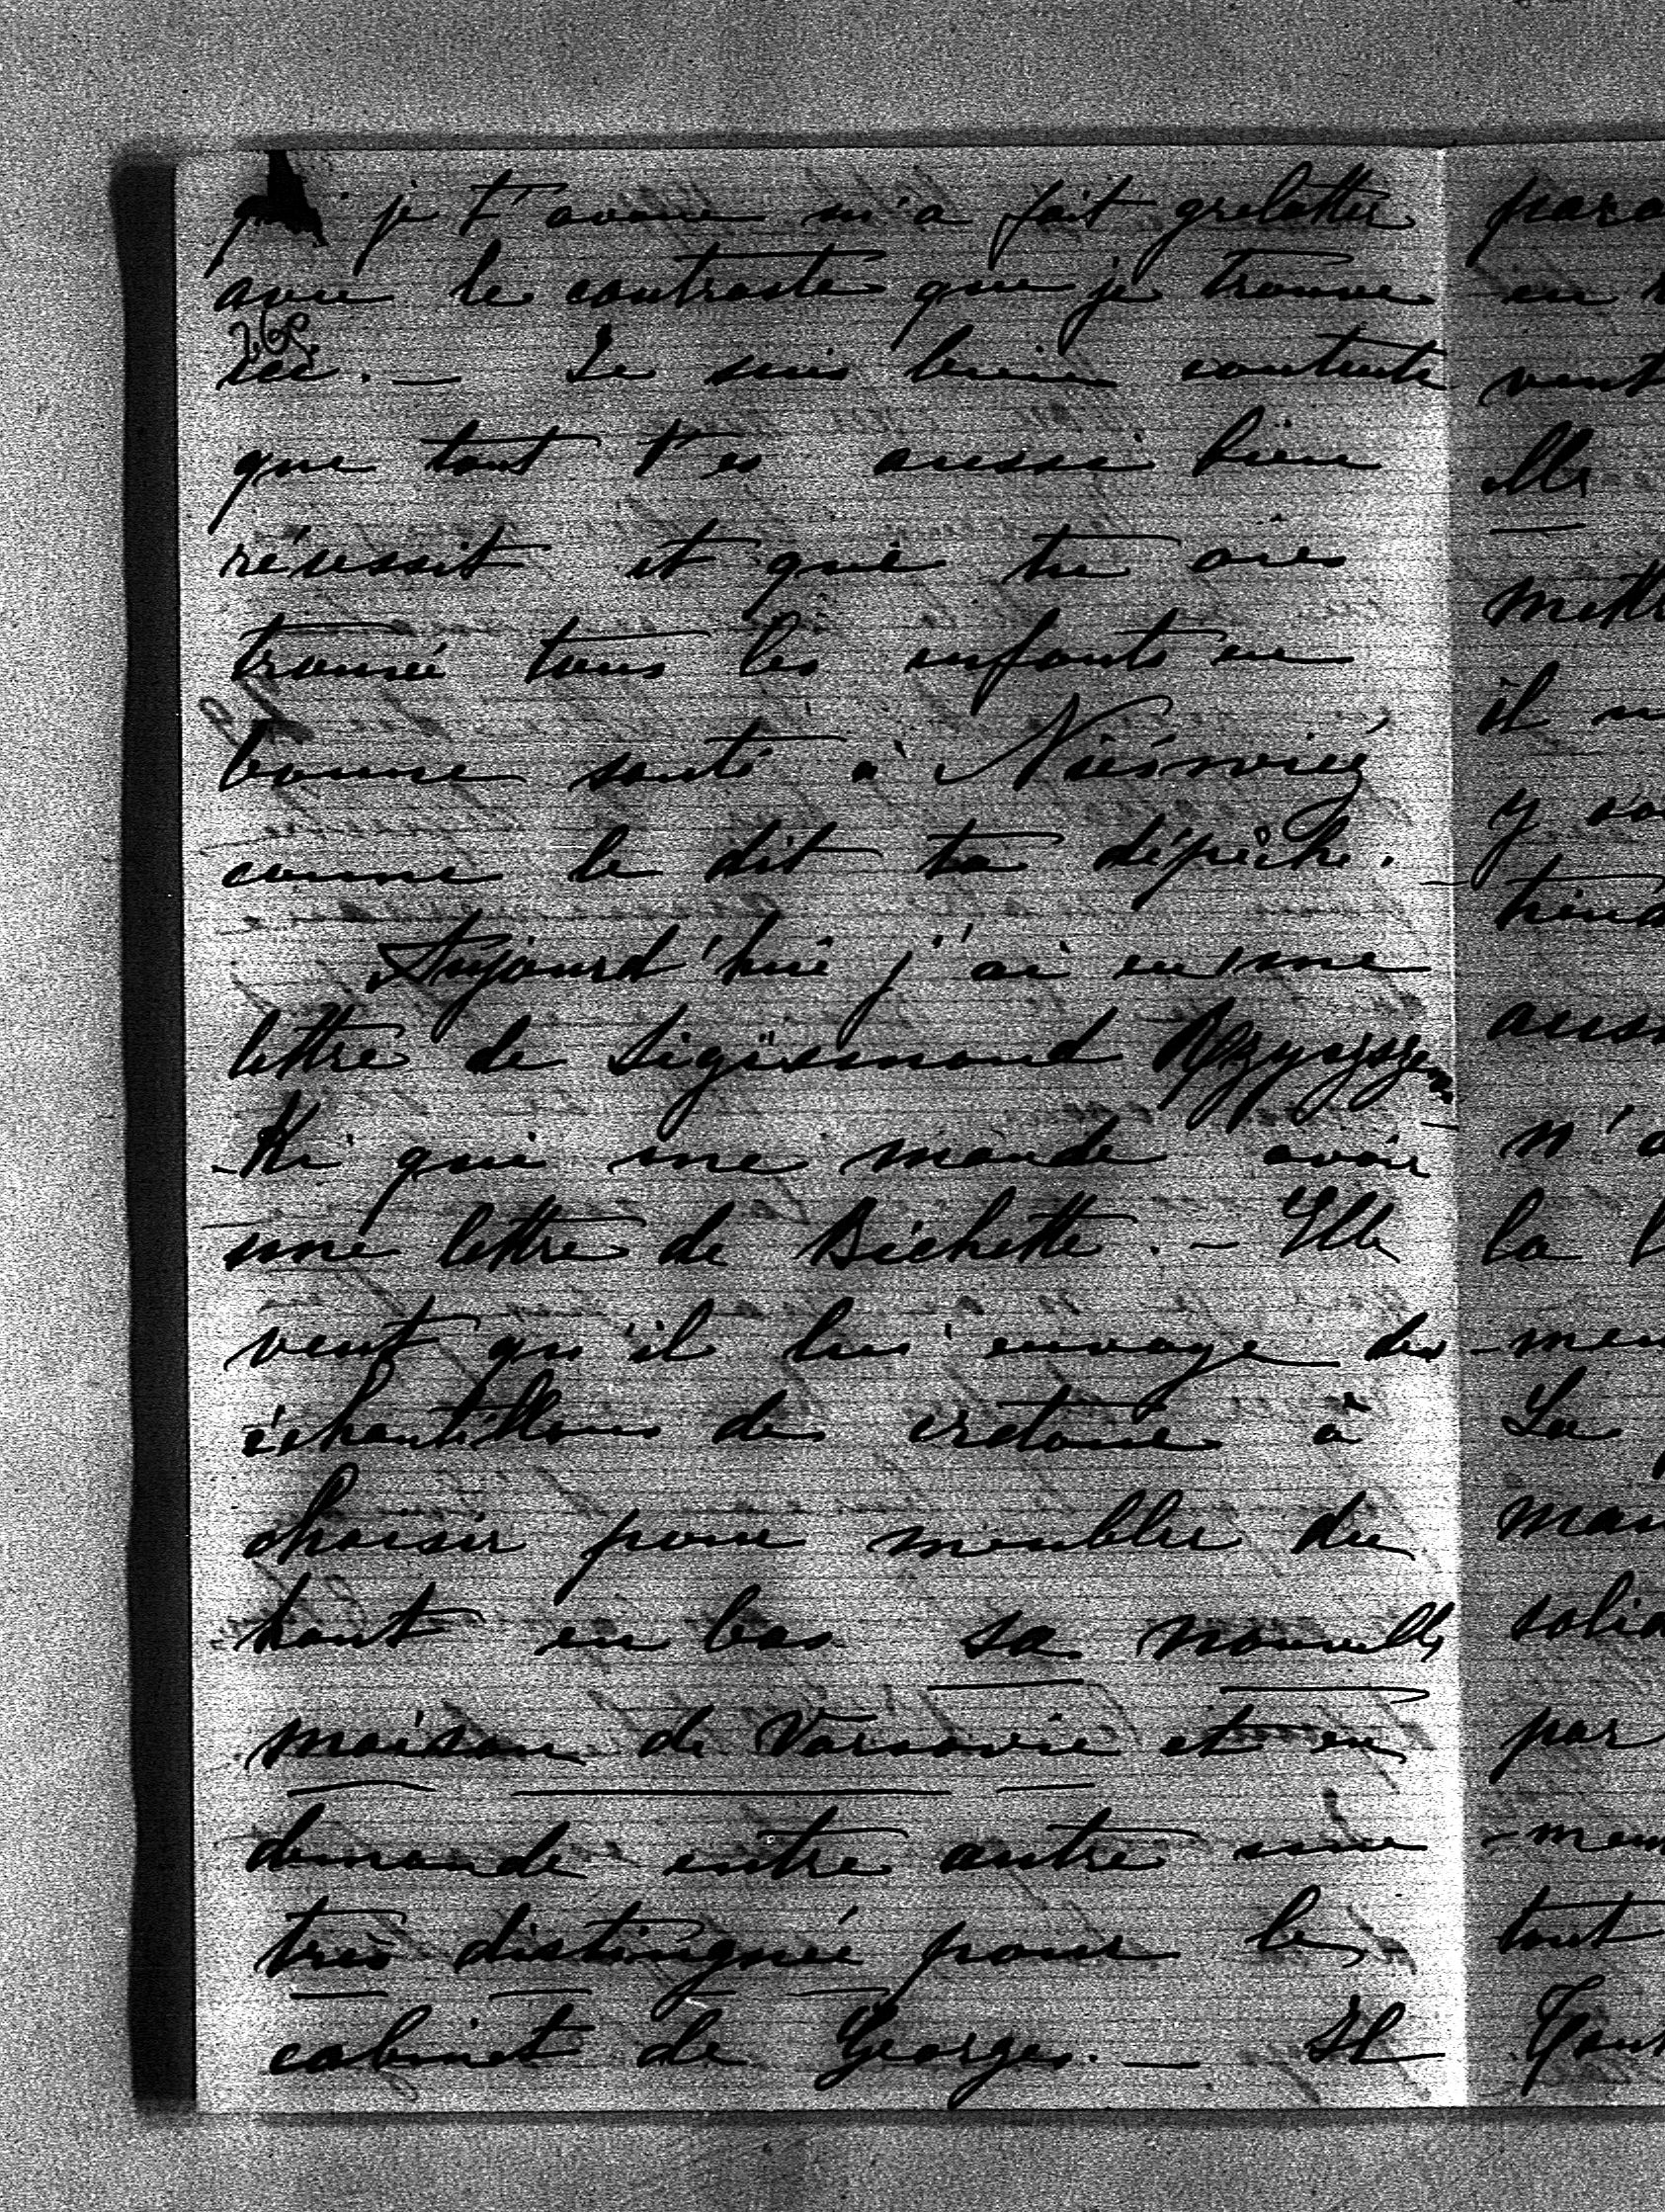 qui je t'avoue m'a fait grelotter
avec le contraste que je trouve
268.
ici. — Je suis bien contente
que tout t'es aussi bien
réussit et que tu aies
trouvé tous les enfants en
bonne santé à Nieśwież
comme le dit ta dépêche. —
Aujourd'hui j'ai eu une
lettre de Sigismond
-ki qui me mande avoir
une lettre de Bichette. — Elle
veut qu'il lui envoye des
échantillons de cretonne à
choisir pour meubler du
haut en bas sa nouvelle
maison de Varsovie et en
demande entre autre une
très distinguée pour le
cabinet de Georges. — Il
elle
mettr
il
y
auss
n'a
la
-men
La
mai
solid
par
-men
tout